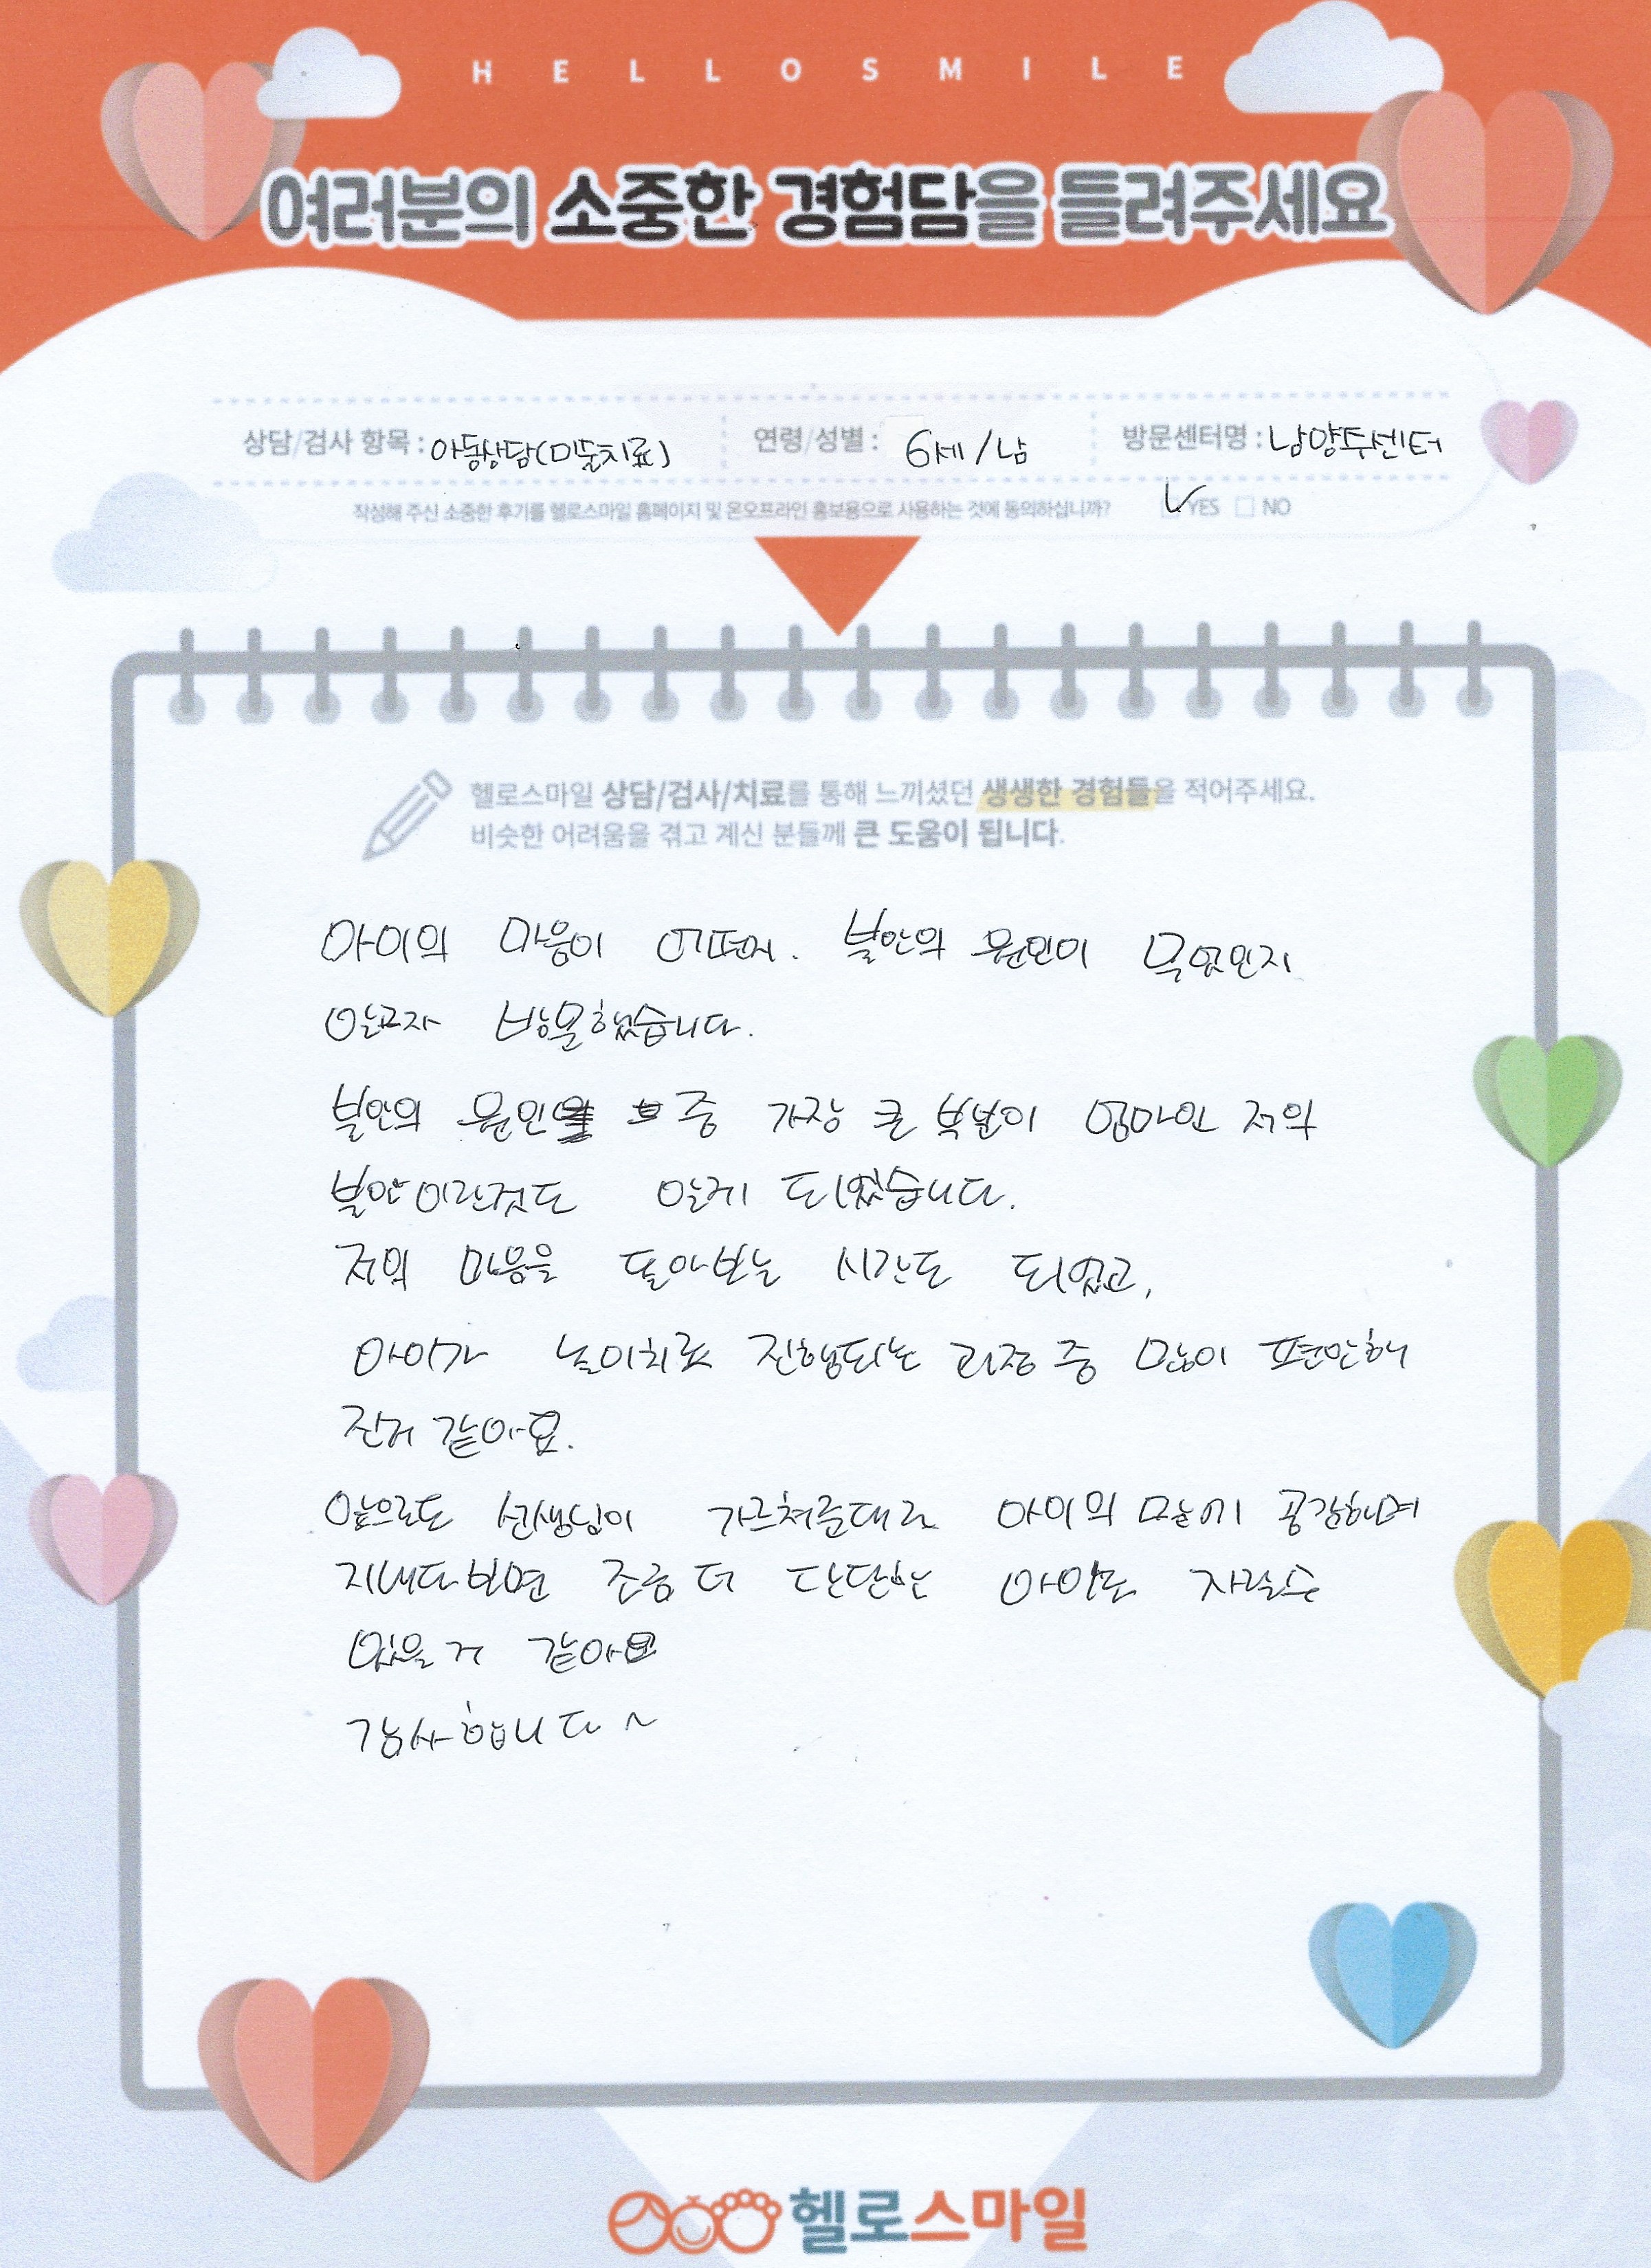 HELLOSMILE
여러분의 소중한 경험담을 들려주세요
상담/검사 항목 : 아동상담(미술치료) 연령/성별 : 6세/남 방문센터명 : 남양주센터
작성해 주신 소중한 후기를 헬로스마일 홈페이지 및 온오프라인 홍보용으로 사용하는 것에 동의하십니까? YES NO
헬로스마일 상담/검사/치료를 통해 느끼셨던 생생한 경험들을 적어주세요.
비슷한 어려움을 겪고 계신 분들께 큰 도움이 됩니다.
아이의 마음이 어떤지. 불안의 원인이 무엇인지
알고자 방문했습니다.
불안의 원인 중 가장 큰 부분이 엄마인 저의
불안이란것도 알게 되었습니다.
저의 마음을 돌아보는 시간도 되었고,
아이가 놀이치료 진행되는 과정 중 많이 편안해
진거 같아요.
앞으로도 선생님이 가르쳐준대로 아이의 마음에 공감하며
지내다보면 조금 더 단단한 아이로 자랄수
있을거 같아요
감사합니다~
헬로스마일